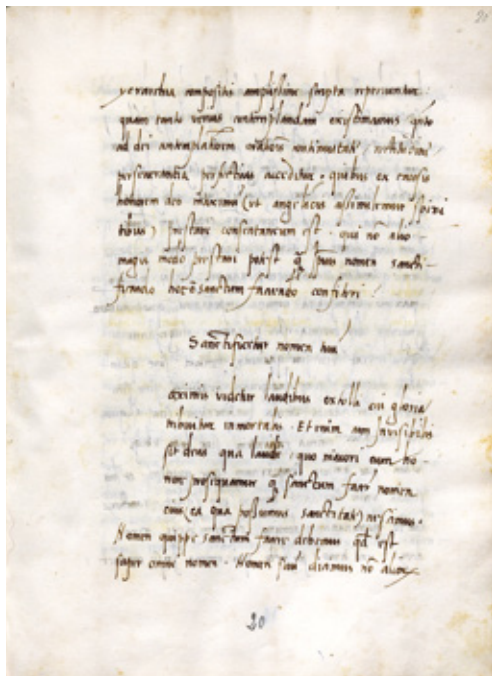 20
yerarchia compositi amplissime scripta reperiuntur
quam tanto verius contemplandam existimamus quto
ad dei contemplationem
perseverantia perfectius acceditur. quibus ex
honorem deo maximu (ut angelicis assimilemur spiri
tibus) prestare consentaneum est. qui no alio
magis modo prestari potest q ipius nomen sancti-
ficando hoc e sanctum faciendo confiteri.
Sanctificetur nomen tuu
aximis videtur laudibus extolli cui gloria
tribuitur inmortalis. Et enim cum Invisibilis
sit deus qua laude quo maiori eum ho-
nore prosequamur q sanctum facere nomen
eius (ea qua possumus sanctitate) nescimus.
Nomen quippe sanctum facere debemus qd est
super omne nomen. Nomen sicut diximus no aliter
20